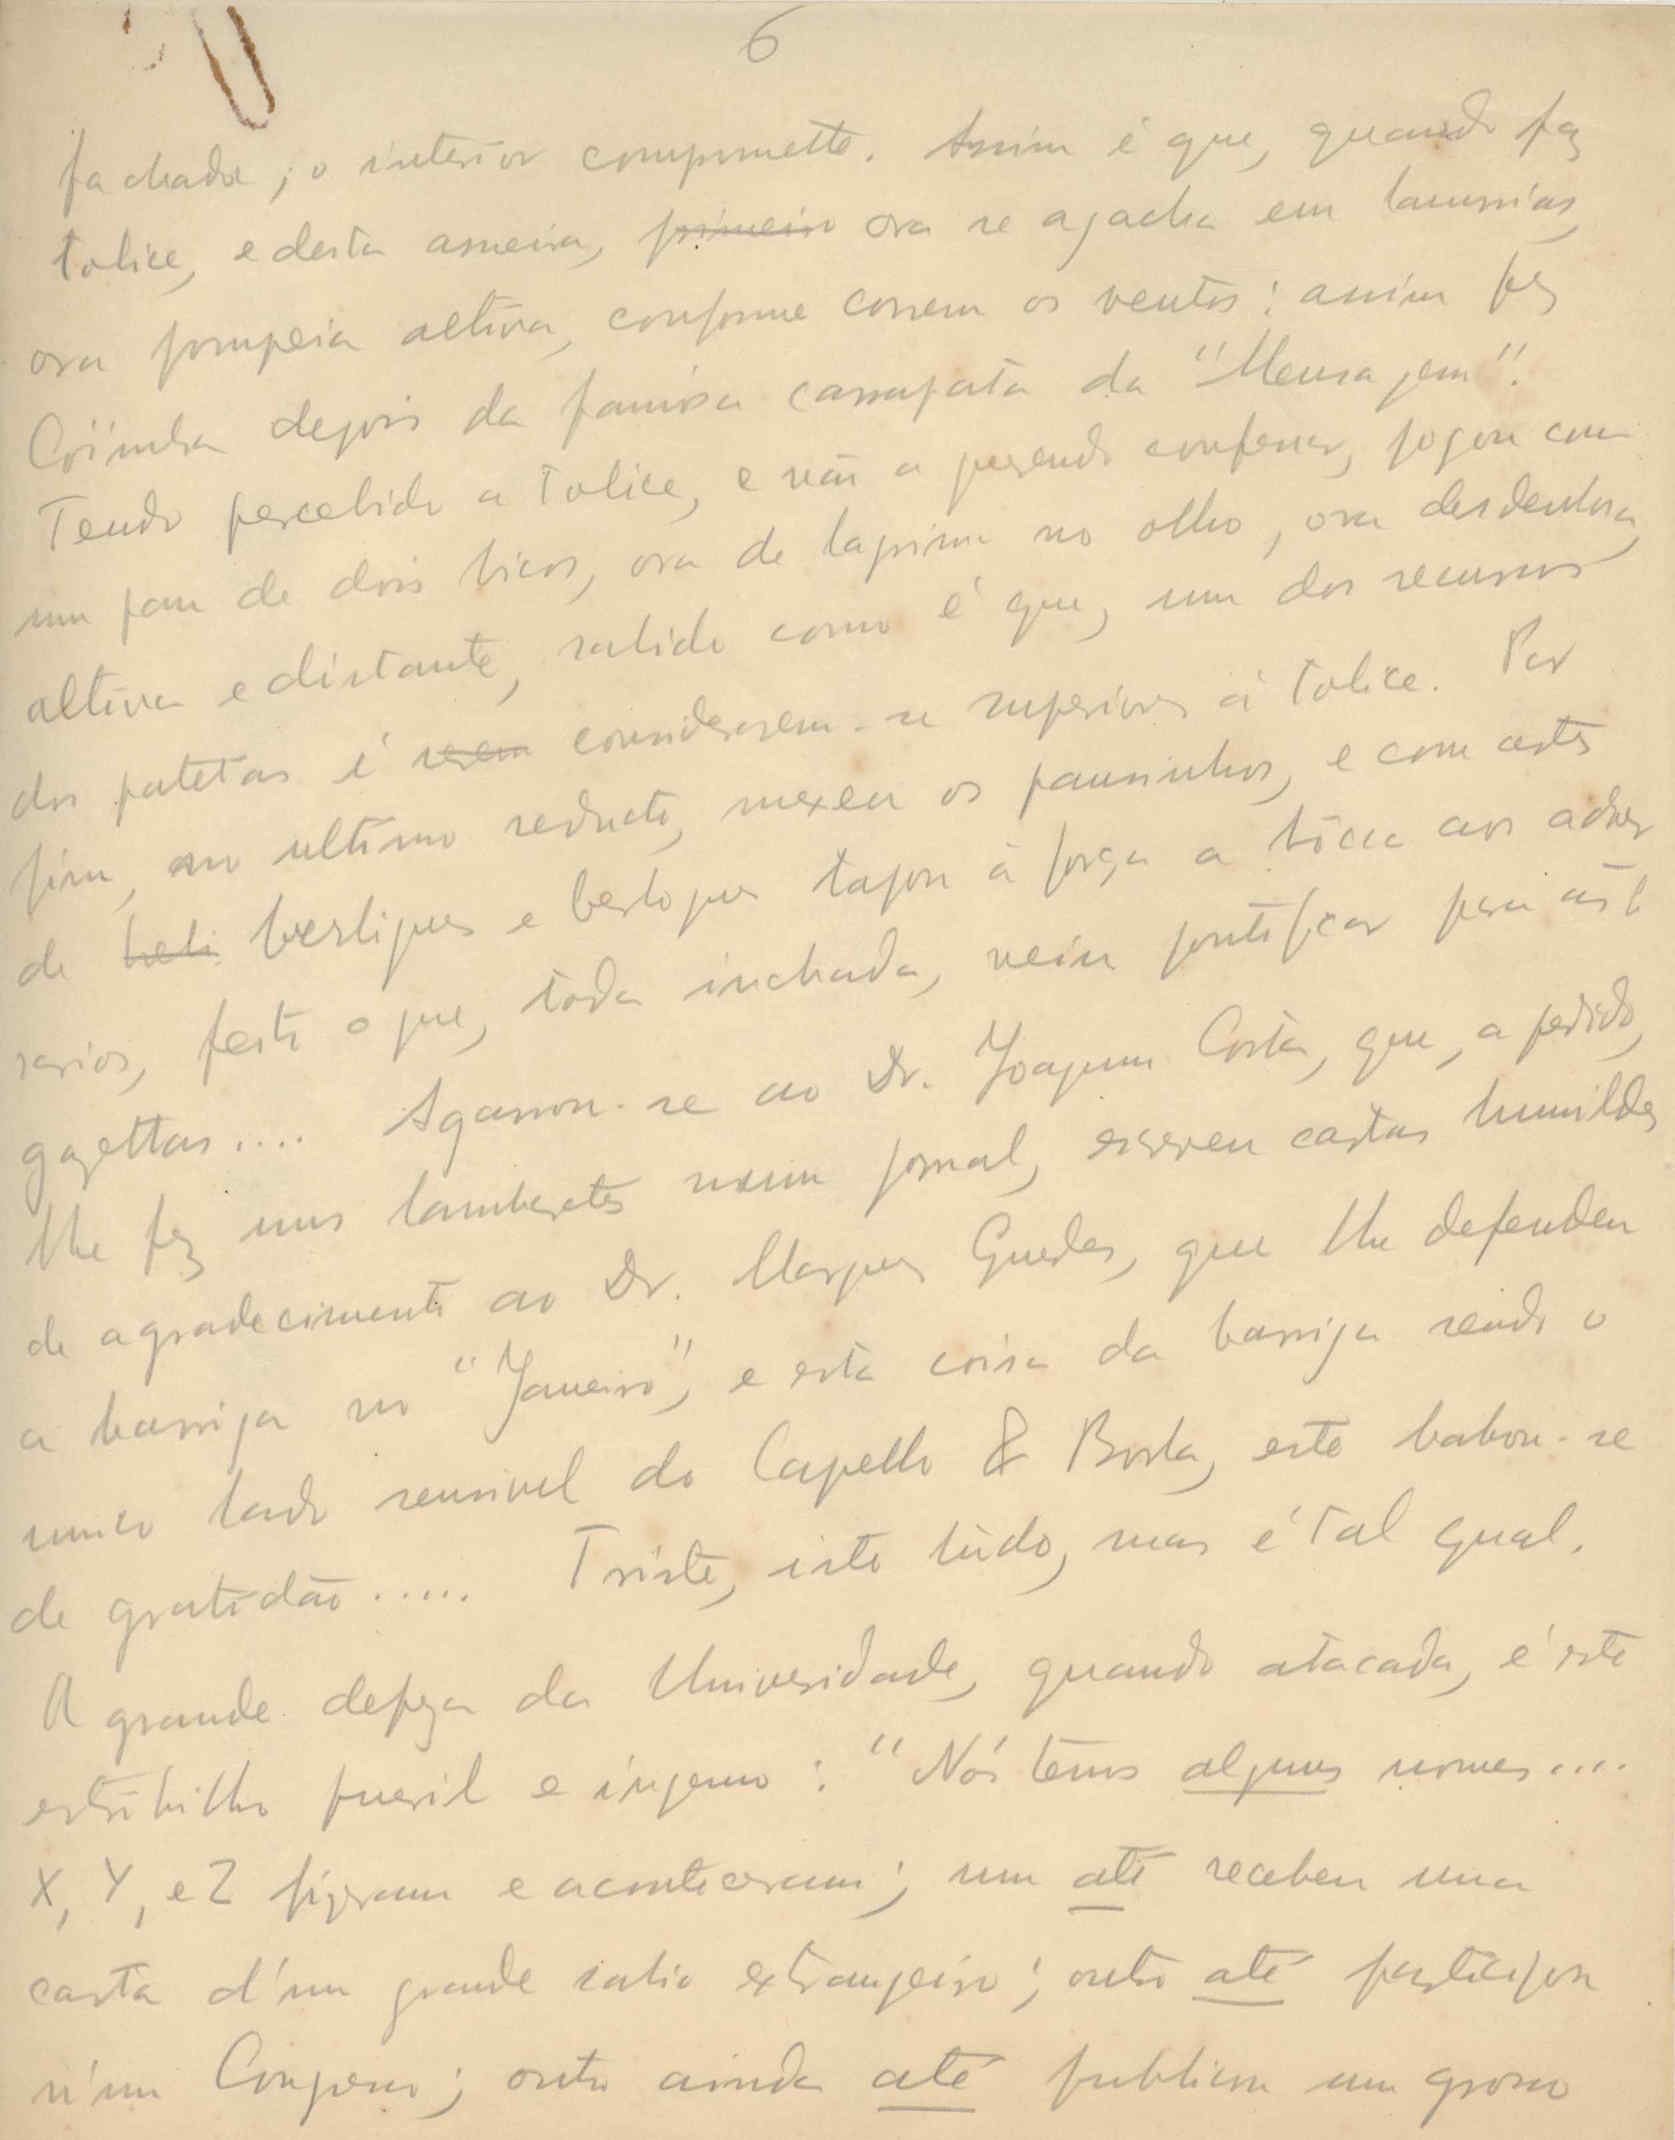 6
fachada; o interior compromette. Assim é que, quando faz
tolice, e desta asneira, primeiro ora se agacha em lamurias,
ora pompeia altiva, conforme correm os ventos: assim fez
Coïmbra depois da famosa carrapata da "Mensagem".
Tendo percebido a tolice, e não a querendo confessar, jogou com
um pau de dois bicos, ora de lagrima no olho, ora desdenhosa,
altiva e distante, sabido como é que, um dos recursos
dos patetas é serem considerarem-se superiores á tolice. Por
fim, no ultimo reducto, mexeu os pausinhos, e com artes
de beli berliques e berloques tapou á força a bôcca aos adver
sarios, feito o que, toda inchada, veiu pontificar para as
gazettas.... Agarrou-se ao Dr. Joaquim Costa, que, a pedido,
lhe fez uns lamberetes num jornal, escreveu cartas humildes
de agradecimento ao Dr. Marques Guedes, que lhe defendeu
a barriga no "Janeiro", e esta coisa da barriga sendo o
unico lado sensivel do Capello & Borla, este babou-se
de gratidão..... Triste, isto tudo, mas é tal qual.
A grande defeza da Universidade, quando atacada, é este
estribilho pueril e ingenuo: "Nós temos alguns nomes....
X, Y, e Z fizeram e aconteceram; um até recebeu uma
carta d'um grande sabio extrangeiro; outro até participou
n'um Congresso; outro ainda até publicou um grosso